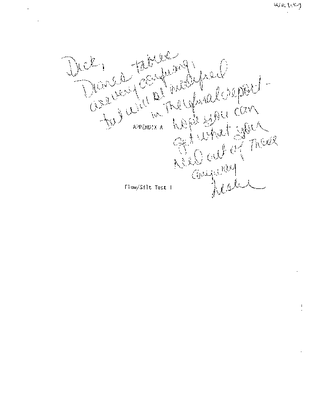 Dick,
These tables
are very confusing,
but will be modified
in the final report -
hope you can
get what you
need out of these
anyway
Leslie
APPENDIX A
Flow/Silt Test I